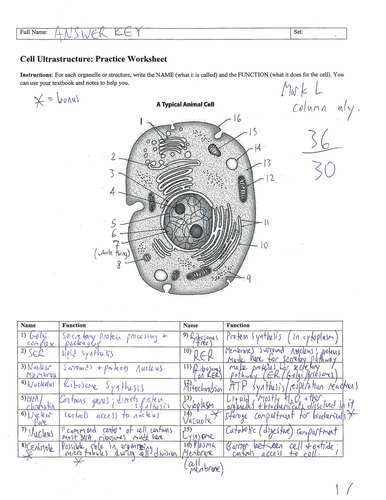 Full Name: ANSWER KEY Set:
Cell Ultrastructure: Practice Worksheet
Instructions: For each organelle or structure, write the NAME (what it is called) and the FUNCTION (what it does for the cell). You
can use your textbook and notes to help you.
* = bonus
Mark L
column only.
36
30
A Typical Animal Cell
1
2
3
4
5
6
7
(whole thing)
8
16
15
14
13
12
11
10
9
Name Function Name Function
1) Golgi complex Secretory protein processing + packaging
9) Ribosomes (free) Protein synthesis (in cytoplasm)
2) SER Lipid synthesis
10) RER Membranes surround nucleus; proteins made here for secretory pathway
3) Nuclear Membrane Surrounds + protects nucleus
11) Ribosomes (on RER) make proteins for secretory pathway (ER/Golgi/lysosomes)
4) Nucleolus Ribosome Synthesis
12) Mitochondrion ATP synthesis/respiration reactions
5) DNA/chromatin Contains genes; directs protein synthesis
13) Cytoplasm Liquid, mostly H2O, other organelles + biochemicals dissolved in it
6) Nuclear Pore controls access to nucleus
14) * Vacuole storage compartment for biochemicals *
7) Nucleus "command center" of cell contains most DNA, ribosomes made here
15) Lysosome Catabolic (digestive) compartment
8) Centriole Possible role in organizing microtubules during cell division *
16) Plasma Membrane (cell membrane) Barrier between cell + outside, controls access to cell